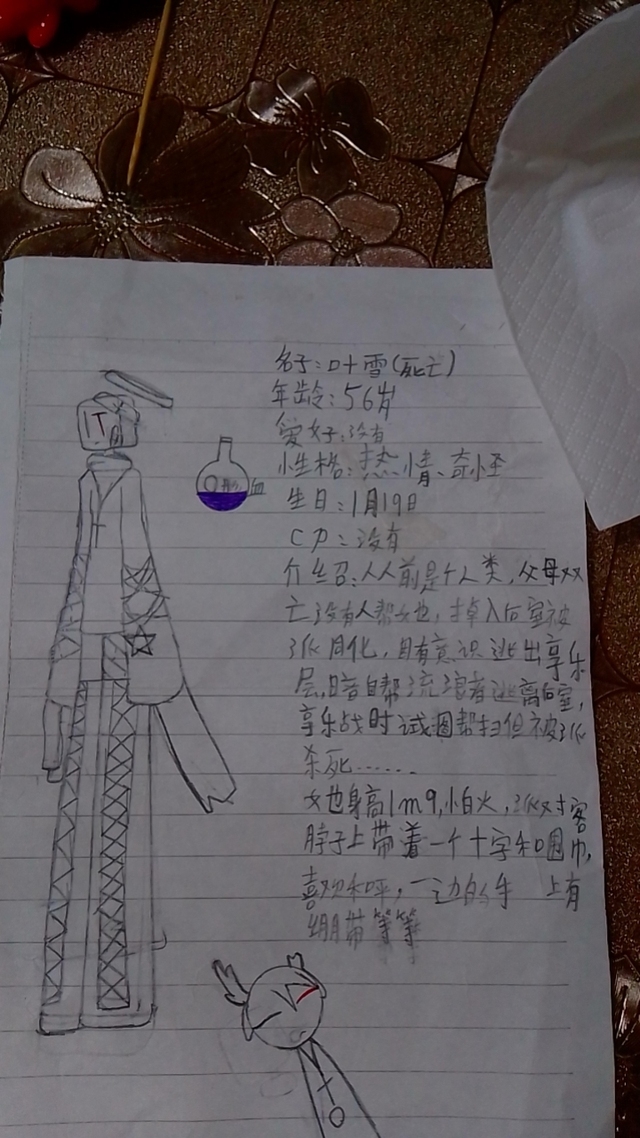 名子:叶雪(死亡)
年龄:56岁
爱好:没有
性格:热情、奇怪
生日:1月19日
CP:没有
介绍:人人前是个人类,父母双
亡没有人帮她,掉入后室被
派月化,且有意识逃出享乐
层,暗自帮流浪者逃离后室,
享乐战时试图帮扫但被派
杀死……
她身高1m9,怕火,派对客
脖子上带着一个十字和围巾,
喜欢和呯,一边的手 上有
绷带等等
T
血